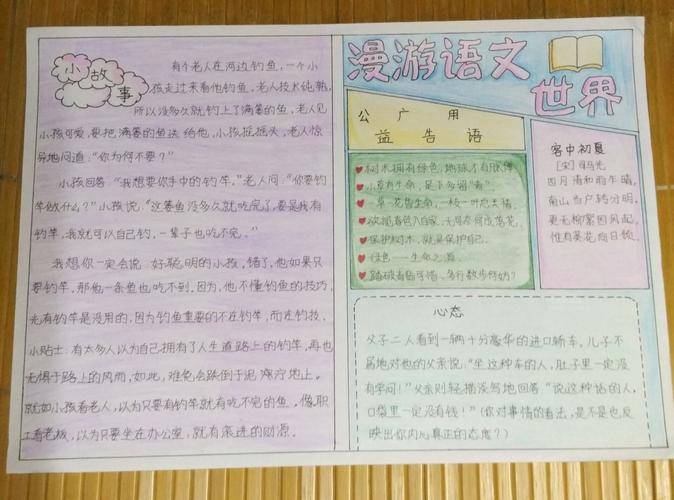 小故事
有个老人在河边钓鱼,一个小
孩走过来看他钓鱼,老人技术纯熟,
所以没多久就钓上了满篓的鱼,老人见
小孩可爱,要把满篓的鱼送给他,小孩摇摇头,老人惊
异地问道:“你为何不要?”
小孩回答:“我想要你手中的钓竿。”老人问:“你要钓
竿做什么?”小孩说:“这篓鱼没多久就吃完了,要是我有
钓竿,我就可以自己钓,一辈子也吃不完。”
我想你一定会说:好聪明的小孩,错了,他如果只
要钓竿,那他一条鱼也吃不到,因为,他不懂钓鱼的技巧,
光有钓竿是没用的,因为钓鱼重要的不在钓竿,而在钓技,
小贴士:有太多人认为自己拥有了人生道路上的钓竿,再也
无惧于路上的风雨,如此,难免会跌倒于泥泞地上。
就如小孩看老人,以为只要有钓竿就有吃不完的鱼,像职
工看老板,以为只要坐在办公室,就有滚进的财源。
漫游语文
世界
公广用
益告语
树木拥有绿色,地球才有脉搏
小草有生命,足下多留“青”
一草一花皆生命,一枝一叶总关情
欲揽春色入自家,无可奈何成落花
保护树木,就是保护自己
绿色——生命之源
踏破青毡可惜,多行数步何妨?
客中初夏
[宋]司马光
四月清和雨乍晴,
南山当户转分明,
更无柳絮因风起,
惟有葵花向日倾。
心态
父子二人看到一辆十分豪华的进口轿车。儿子不
屑地对他的父亲说:“坐这种车的人,肚子里一定没
有学问!”父亲则轻描淡写地回答:“说这种话的人,
口袋里一定没有钱!”(你对事情的看法,是不是也反
映出你内心真正的态度?)